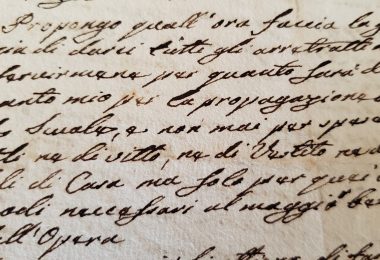 Propongo quall'ora faccia la g
zia di darci tutti gli arretratti
servirmene per quanto sarà d
anto mio per la propagazione
e non mai per spese
di vitto, ne di Vestito ne d
li di Casa ma solo per quei
odi neccessari al maggior be
ll'Opera